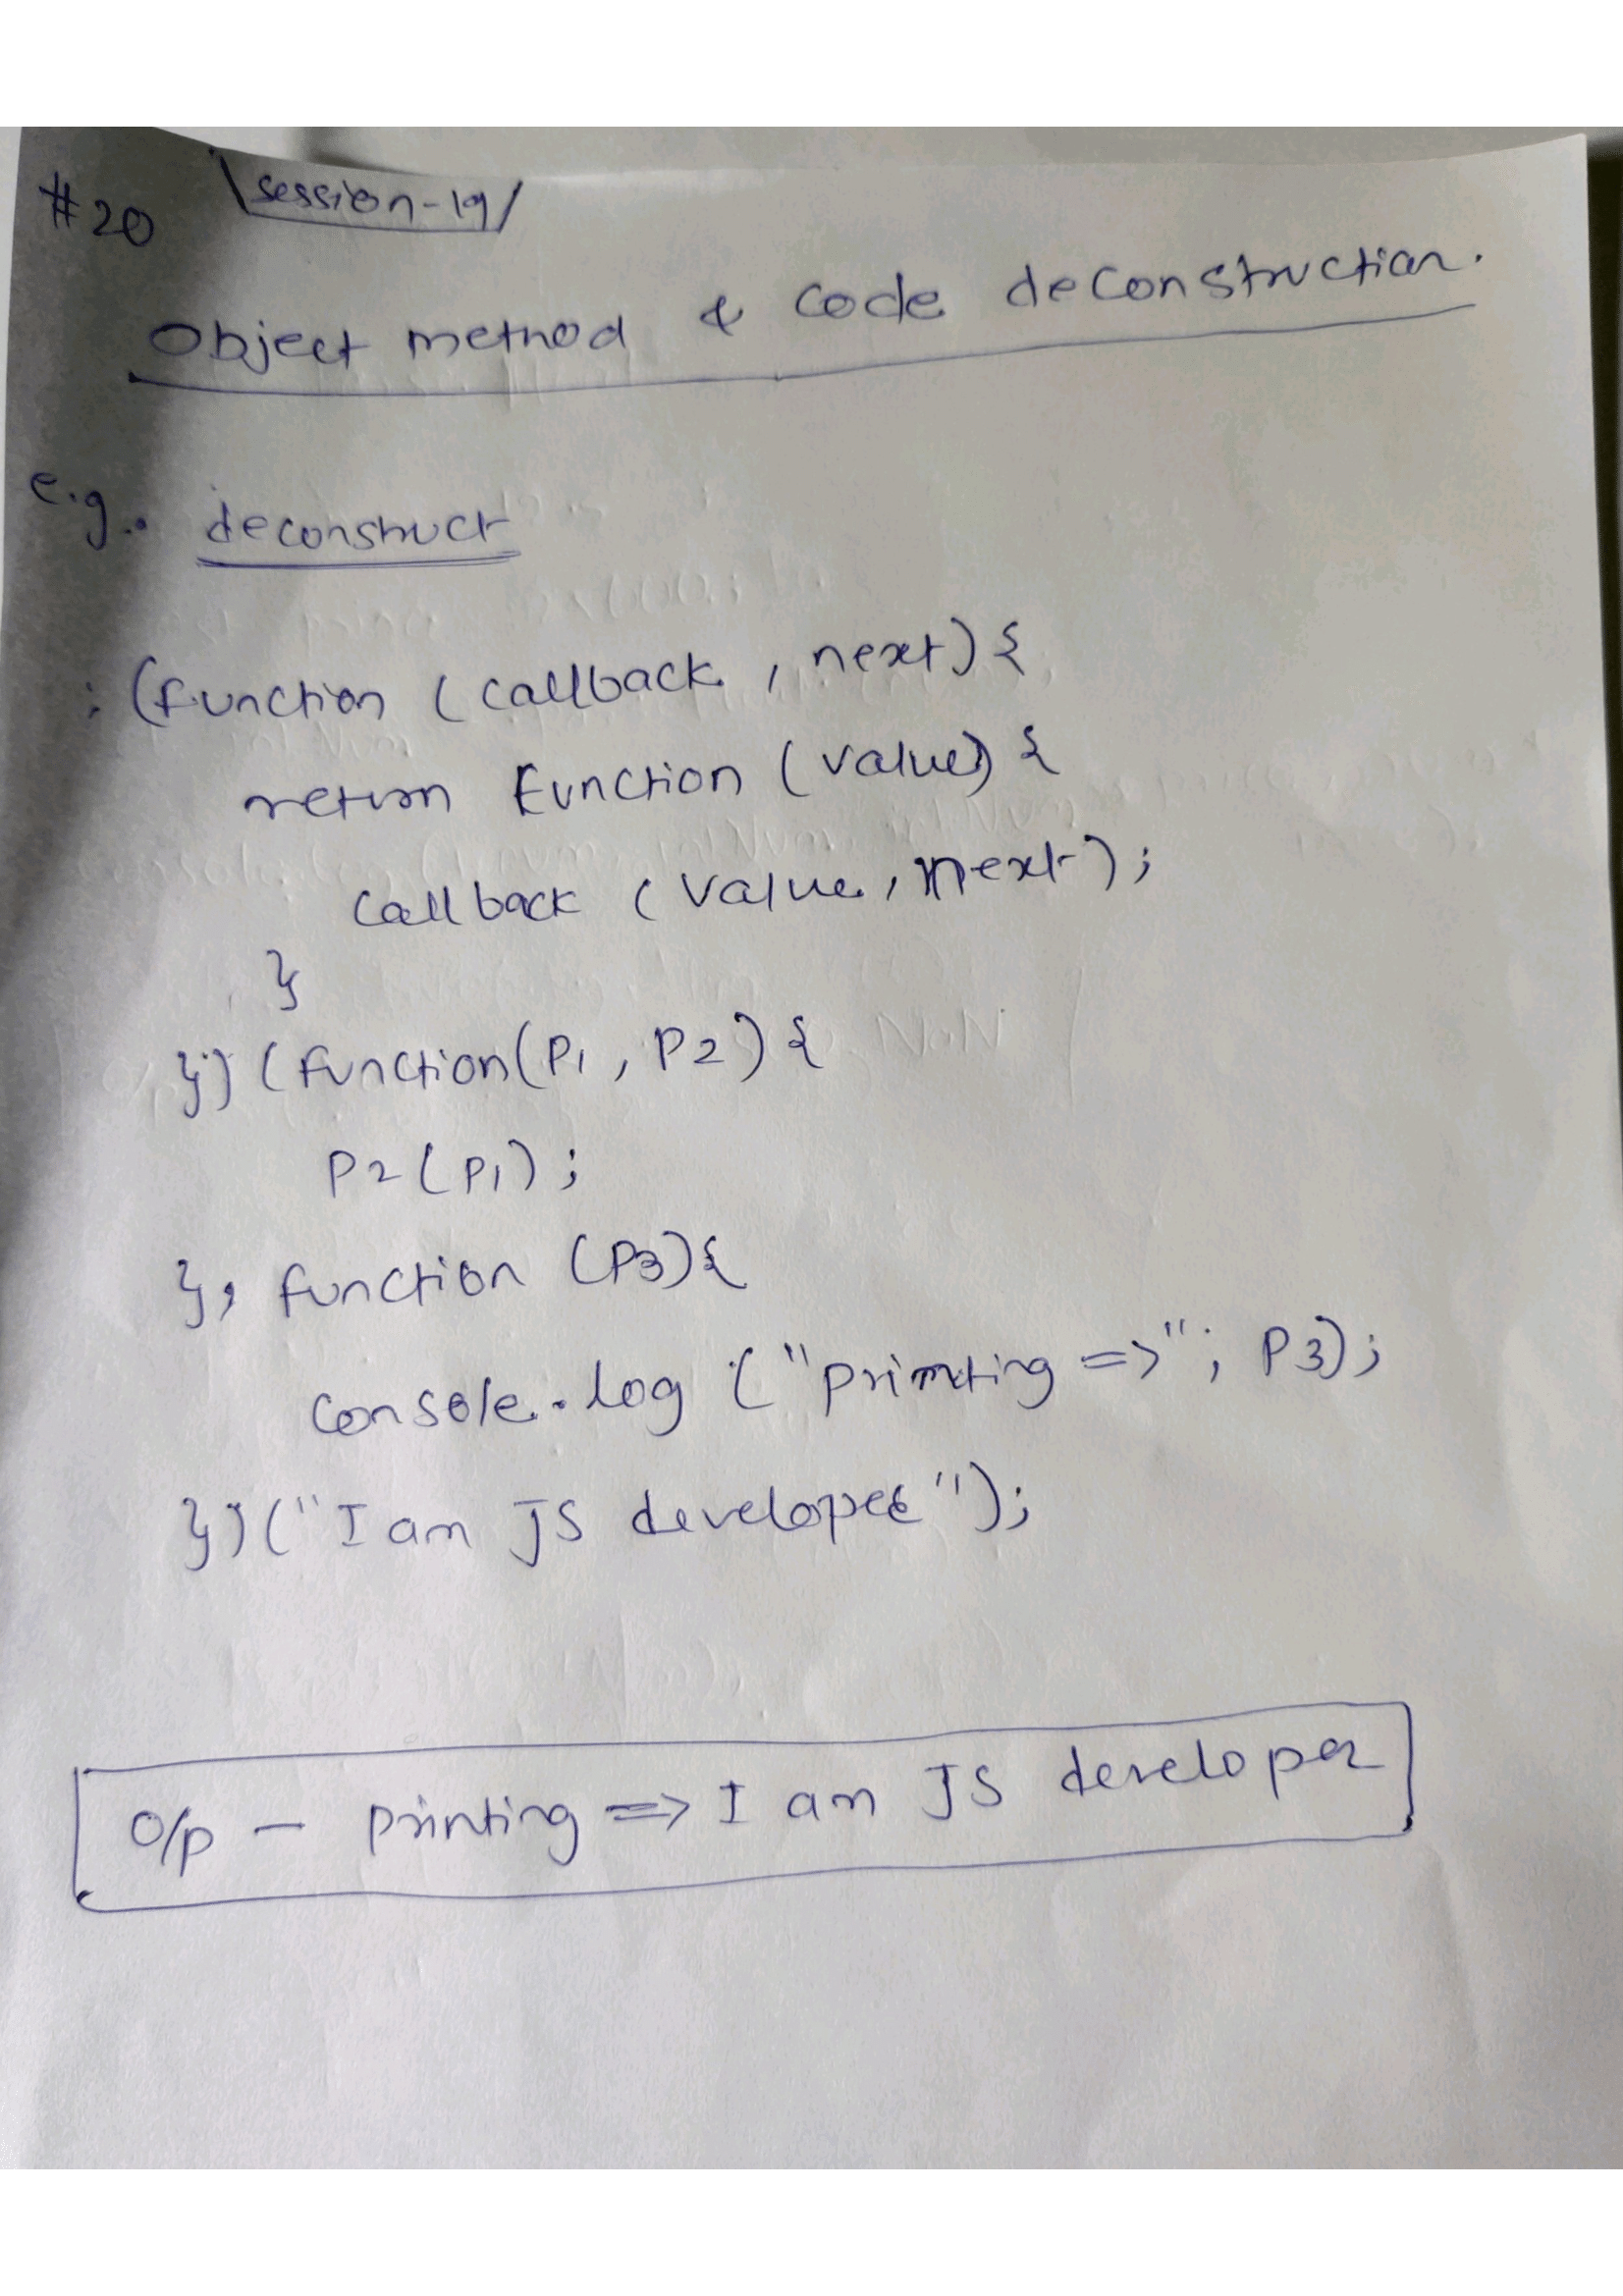 #20 session-19
Object method & Code deconstruction.
e.g. deconstruct
; (function (callback, next) {
return function (value) {
callback (value, next);
}
}) (function(P1, P2) {
P2(P1);
}, function (P3){
console.log ("printing =>"; P3);
})("I am JS developer");
O/p - printing => I am JS developer